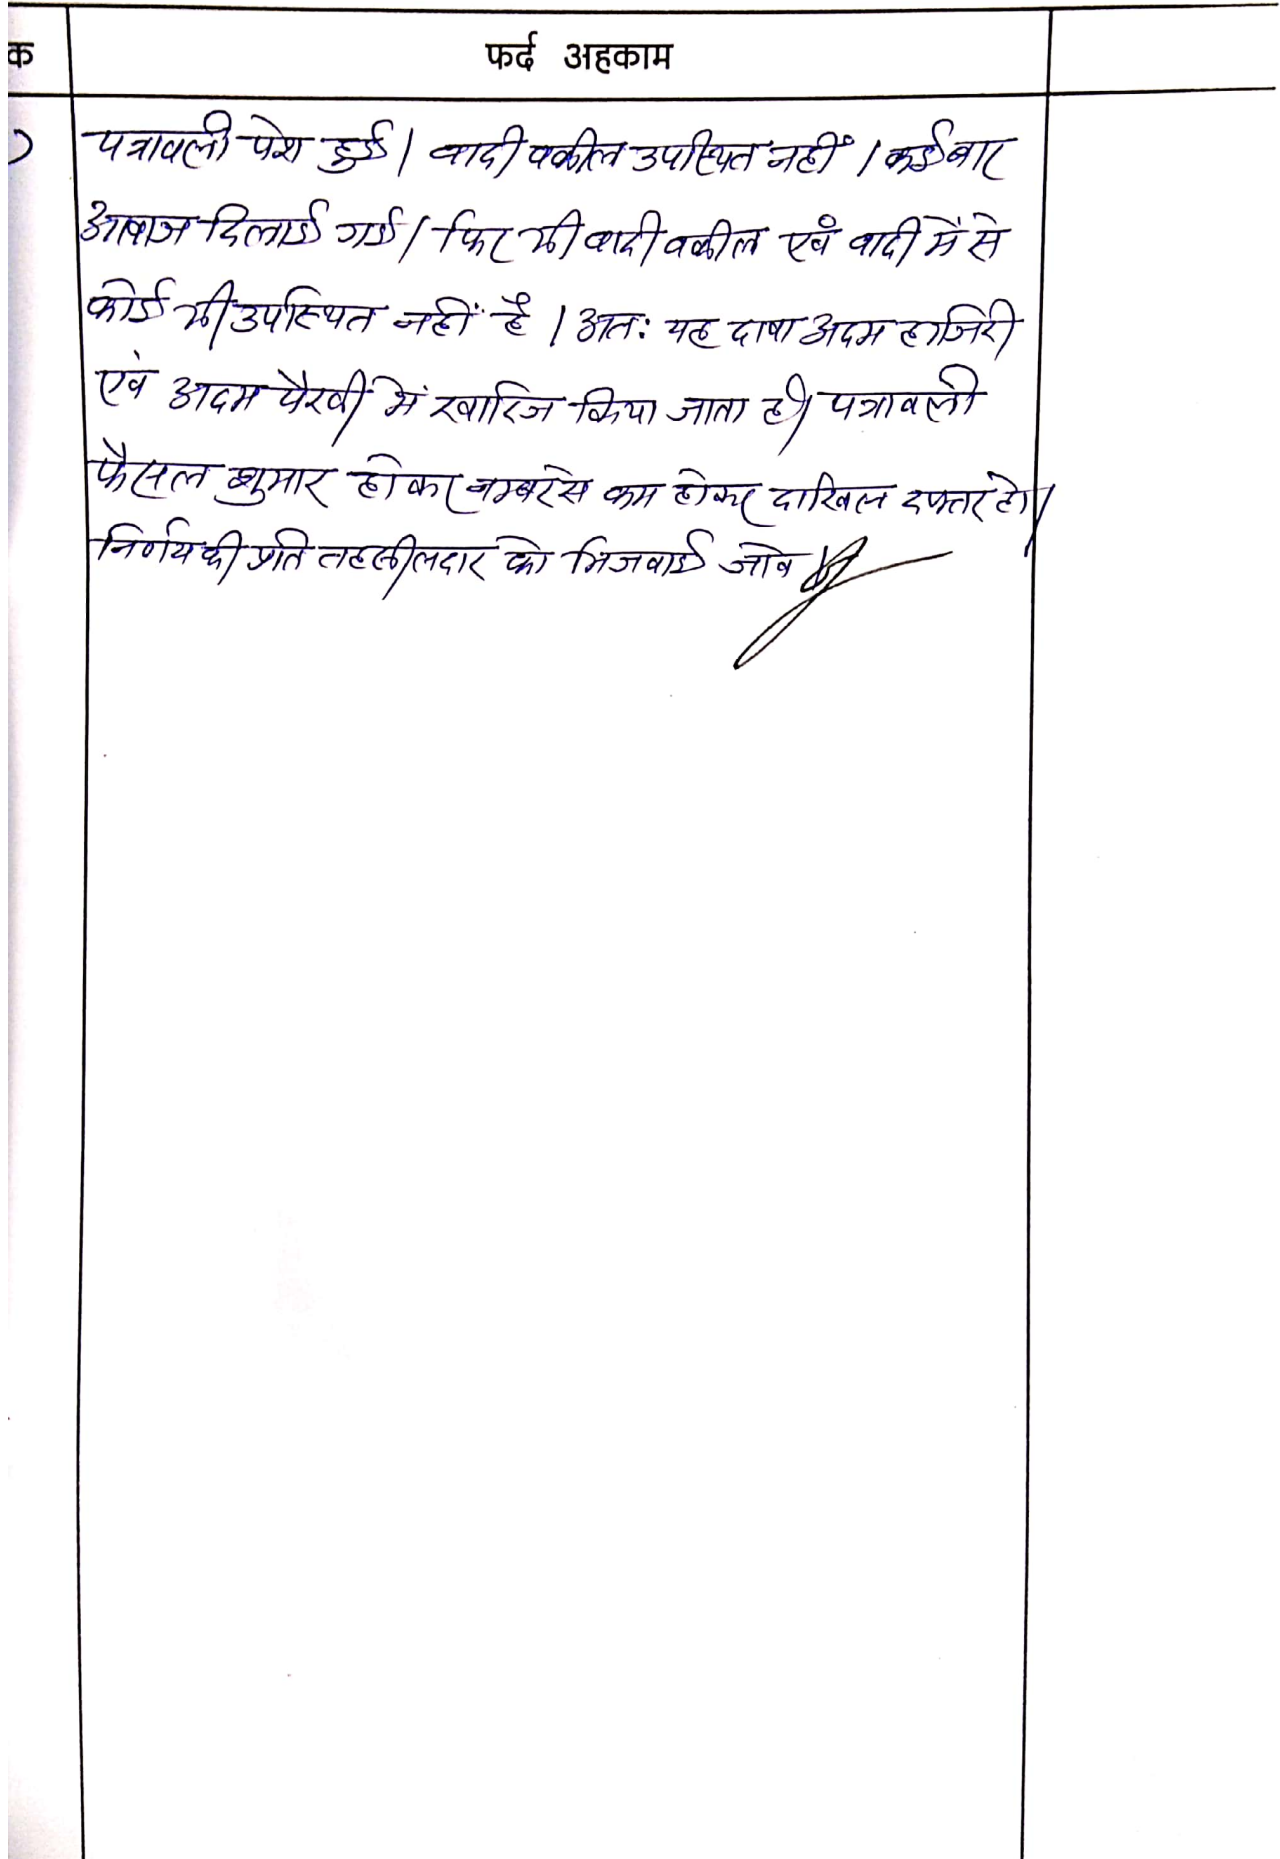 क फर्द अहकाम
पत्रावली पेश हुई। वादी वकील उपस्थित नहीं। कई बार
आवाज दिलाई गई। फिर भी वादी वकील एवं वादी में से
कोई भी उपस्थित नहीं है। अतः यह दावा अदम हाजिरी
एवं अदम पैरवी में खारिज किया जाता है। पत्रावली
फैसल शुमार होकर नम्बर से कम होकर दाखिल दफ्तर हो।
निर्णय की प्रति तहसीलदार को भिजवाई जावे